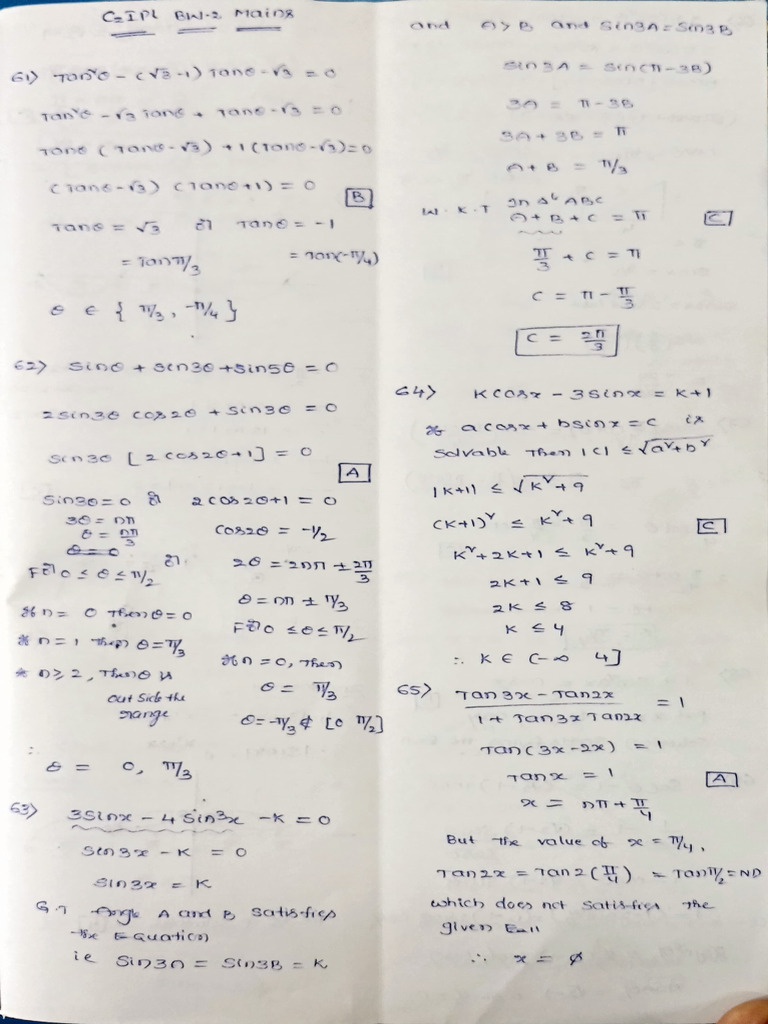 C-IPL BW-2 Mains
61) Tan²θ - (√3-1) Tanθ - √3 = 0
Tan²θ - √3 Tanθ + Tanθ - √3 = 0
Tanθ (Tanθ - √3) + 1 (Tanθ - √3) = 0
(Tanθ - √3) (Tanθ + 1) = 0
B
Tanθ = √3 or Tanθ = -1
= Tan π/3 = Tan(-π/4)
θ ∈ { π/3, -π/4 }
62) Sinθ + Sin3θ + Sin5θ = 0
2Sin3θ Cos2θ + Sin3θ = 0
Sin3θ [2Cos2θ + 1] = 0
A
Sin3θ = 0 or 2Cos2θ + 1 = 0
3θ = nπ
θ = nπ/3
θ = 0
For 0 ≤ θ ≤ π/2 or
If n = 0 Then θ = 0
If n = 1 Then θ = π/3
* n ≥ 2, Then θ is
out side the
range
Cos2θ = -1/2
2θ = 2nπ ± 2π/3
θ = nπ ± π/3
For 0 ≤ θ ≤ π/2
If n = 0, Then
θ = π/3
θ = -π/3 ∉ [0 π/2]
∴
θ = 0, π/3
63) 3Sinx - 4Sin³x - K = 0
Sin3x - K = 0
Sin3x = K
G.T Angle A and B Satisfies
the Equation
ie Sin3A = Sin3B = K
and A > B and Sin3A = Sin3B
Sin3A = Sin(π - 3B)
3A = π - 3B
3A + 3B = π
A + B = π/3
W.K.T In Δle ABC
A + B + C = π
C
π/3 + C = π
C = π - π/3
C = 2π/3
64) K cosx - 3 sinx = K+1
If a cosx + b sinx = c is
Solvable Then |c| ≤ √a²+b²
|K+1| ≤ √K²+9
(K+1)² ≤ K²+9
C
K²+2K+1 ≤ K²+9
2K+1 ≤ 9
2K ≤ 8
K ≤ 4
∴ K ∈ (-∞ 4]
65) Tan3x - Tan2x / 1 + Tan3x Tan2x = 1
Tan(3x - 2x) = 1
Tanx = 1
A
x = nπ + π/4
But The value of x = π/4,
Tan2x = Tan2(π/4) = Tanπ/2 = ND
which does not Satisfies The
given
∴ x = ∅